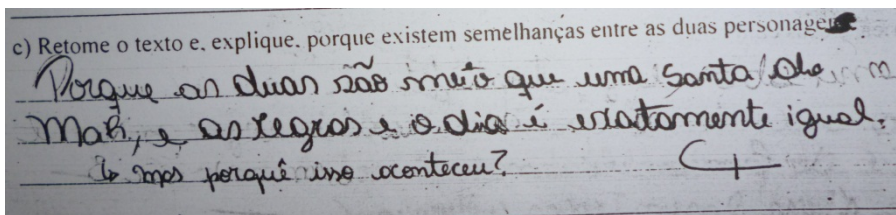 c) Retome o texto e, explique, porque existem semelhanças entre as duas personagens
Porque as duas são meio que uma Santa
Mah, e as regras e o dia é exatamente igual.
↳ mas porquê isso aconteceu?